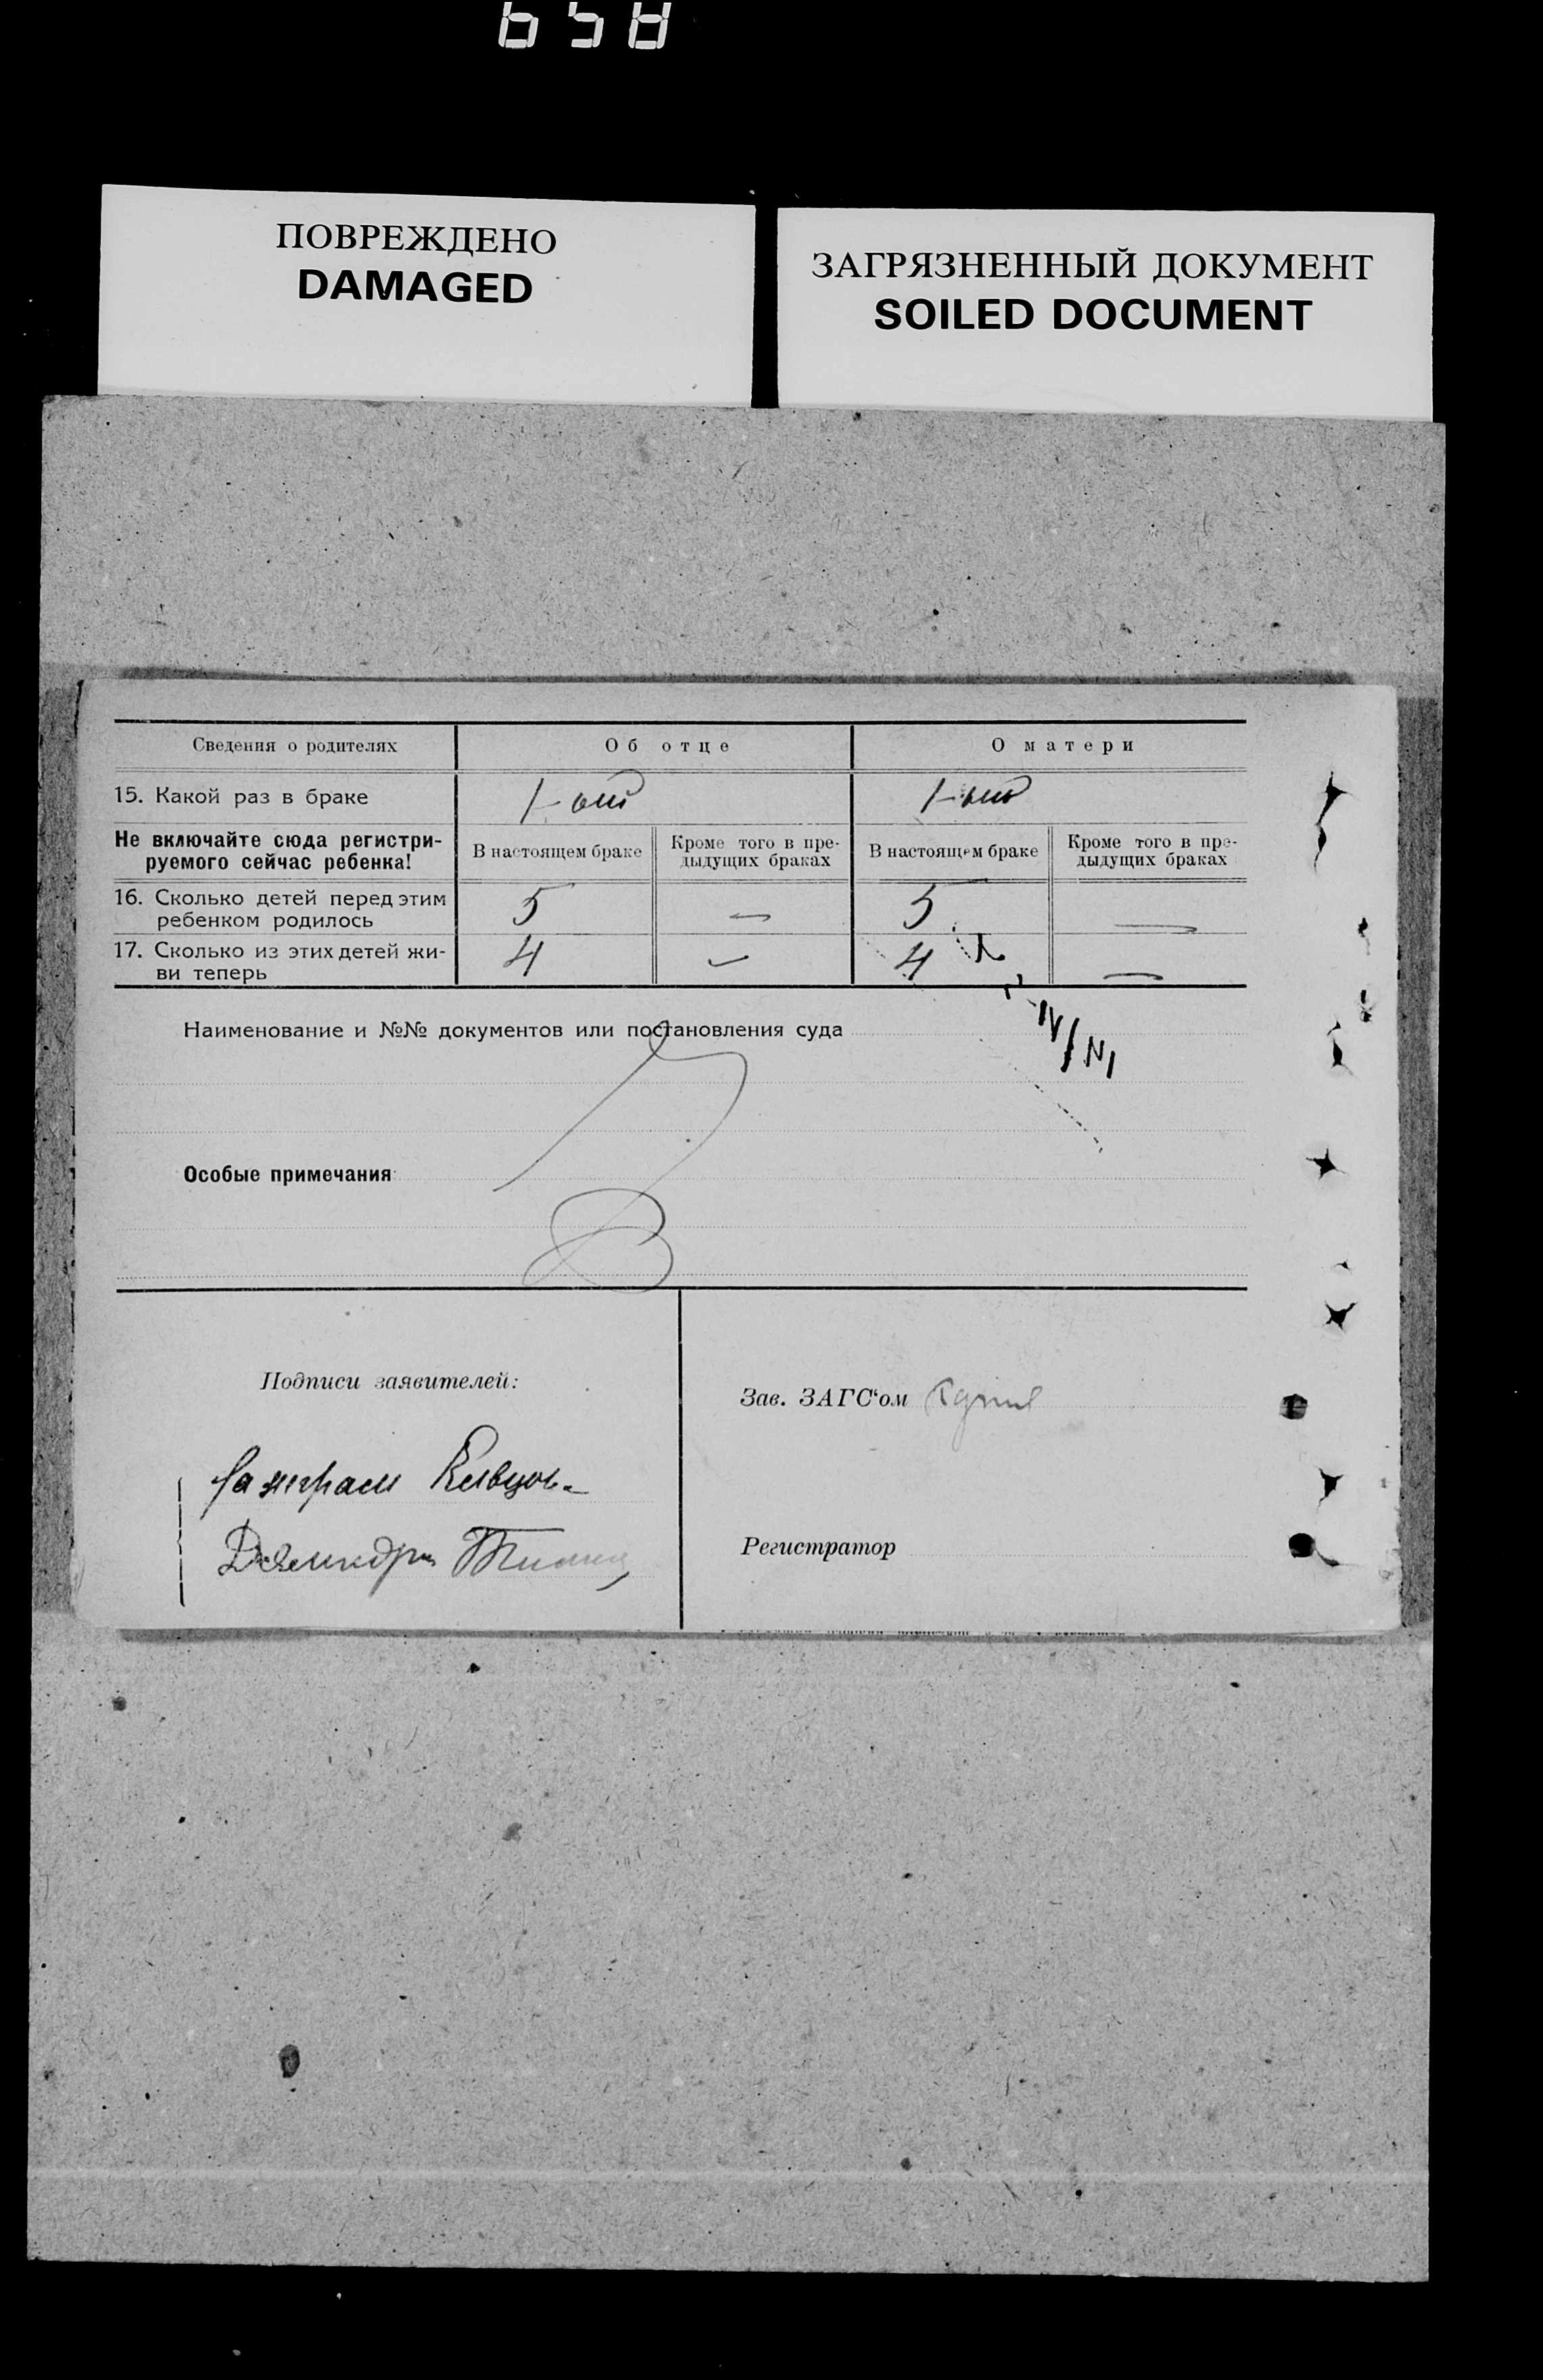 658
ПОВРЕЖДЕНО
DAMAGED
ЗАГРЯЗНЕННЫЙ ДОКУМЕНТ
SOILED DOCUMENT
Сведения о родителях Об отце О матери
15. Какой раз в браке 1-ый 1-ый
Не включайте сюда регистри-
руемого сейчас ребенка!
В настоящем браке Кроме того в пре-
дыдущих браках
В настоящем браке Кроме того в пре-
дыдущих браках
16. Сколько детей перед этим
ребенком родилось 5 — 5 —
17. Сколько из этих детей жи-
ви теперь 4 — 4 —
Наименование и №№ документов или постановления суда
Особые примечания
Подписи заявителей:
Зав. ЗАГС‘ом
Регистратор